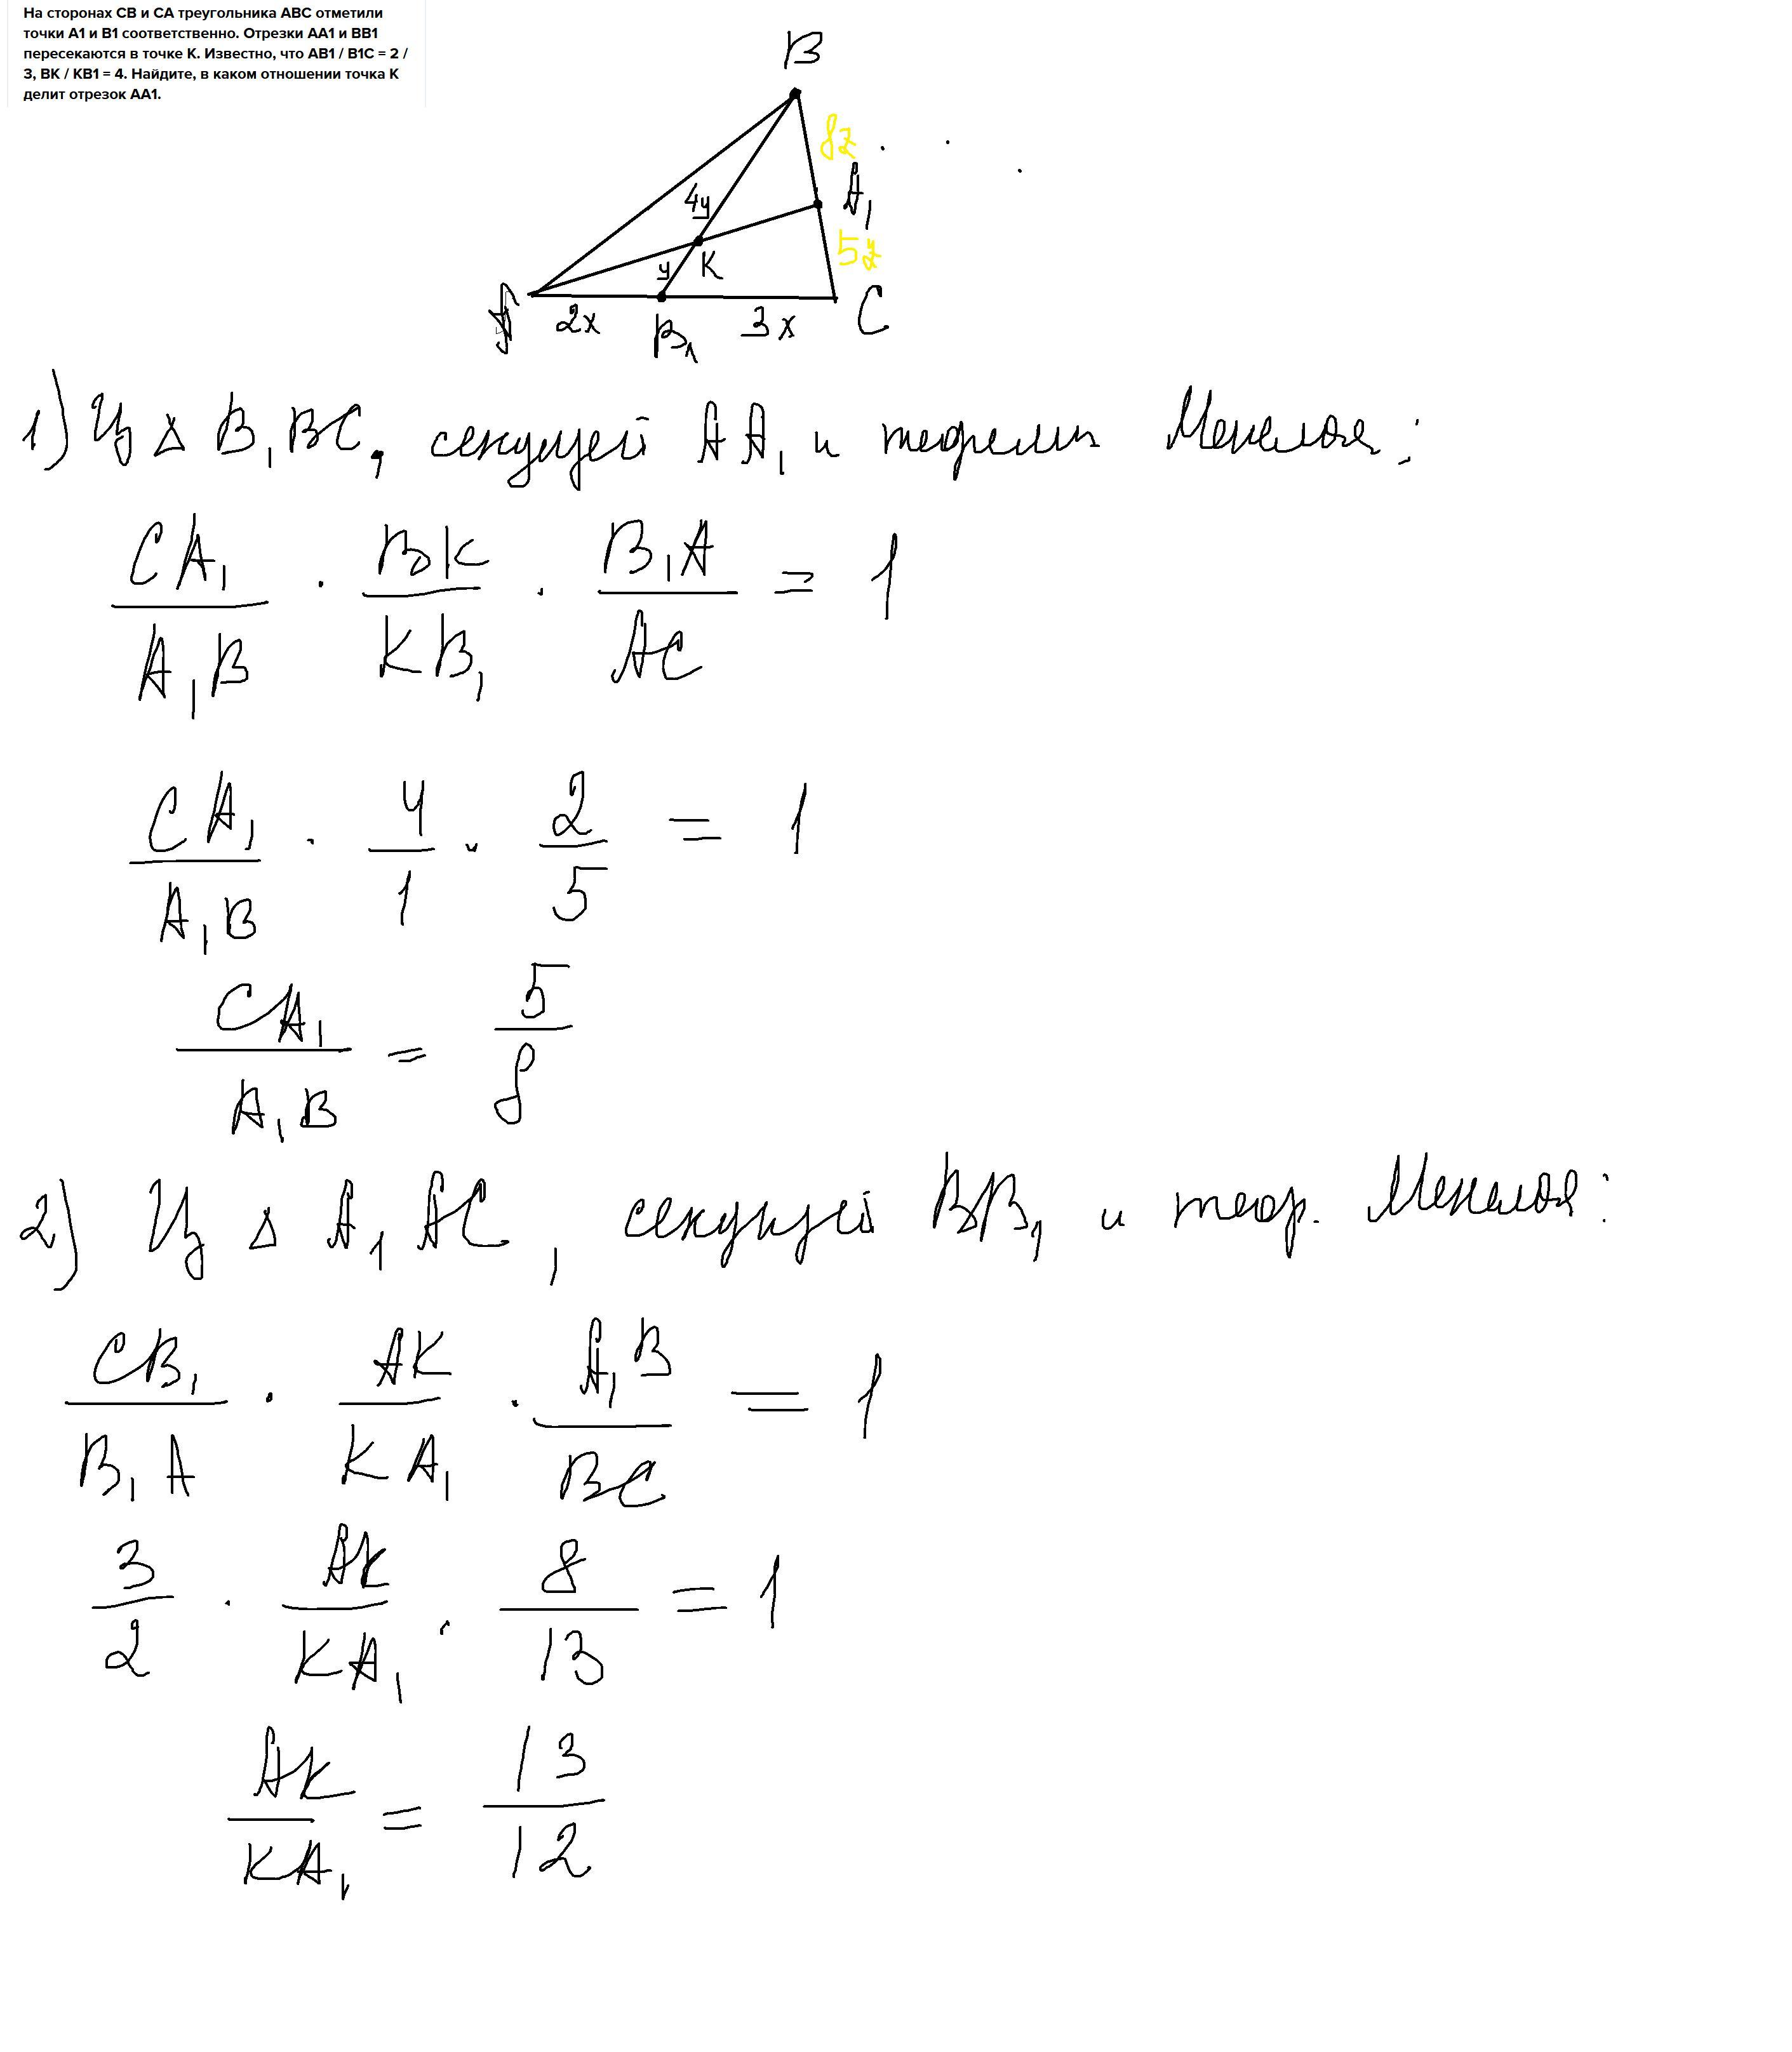 На сторонах СВ и СА треугольника АВС отметили
точки А1 и В1 соответственно. Отрезки АА1 и ВВ1
пересекаются в точке К. Известно, что АВ1 / В1С = 2 /
3, ВК / КВ1 = 4. Найдите, в каком отношении точка К
делит отрезок АА1.
B
8z
A₁
4y
5z
y K
A 2x B₁ 3x C
1) Из △ B₁BC, секущей AA₁ и теоремы Менелая:
CA₁/A₁B · BK/KB₁ · B₁A/AC = 1
CA₁/A₁B · 4/1 · 2/5 = 1
CA₁/A₁B = 5/8
2) Из △ A₁AC, секущей BB₁ и теор. Менелая:
CB₁/B₁A · AK/KA₁ · A₁B/BC = 1
3/2 · AK/KA₁ · 8/13 = 1
AK/KA₁ = 13/12